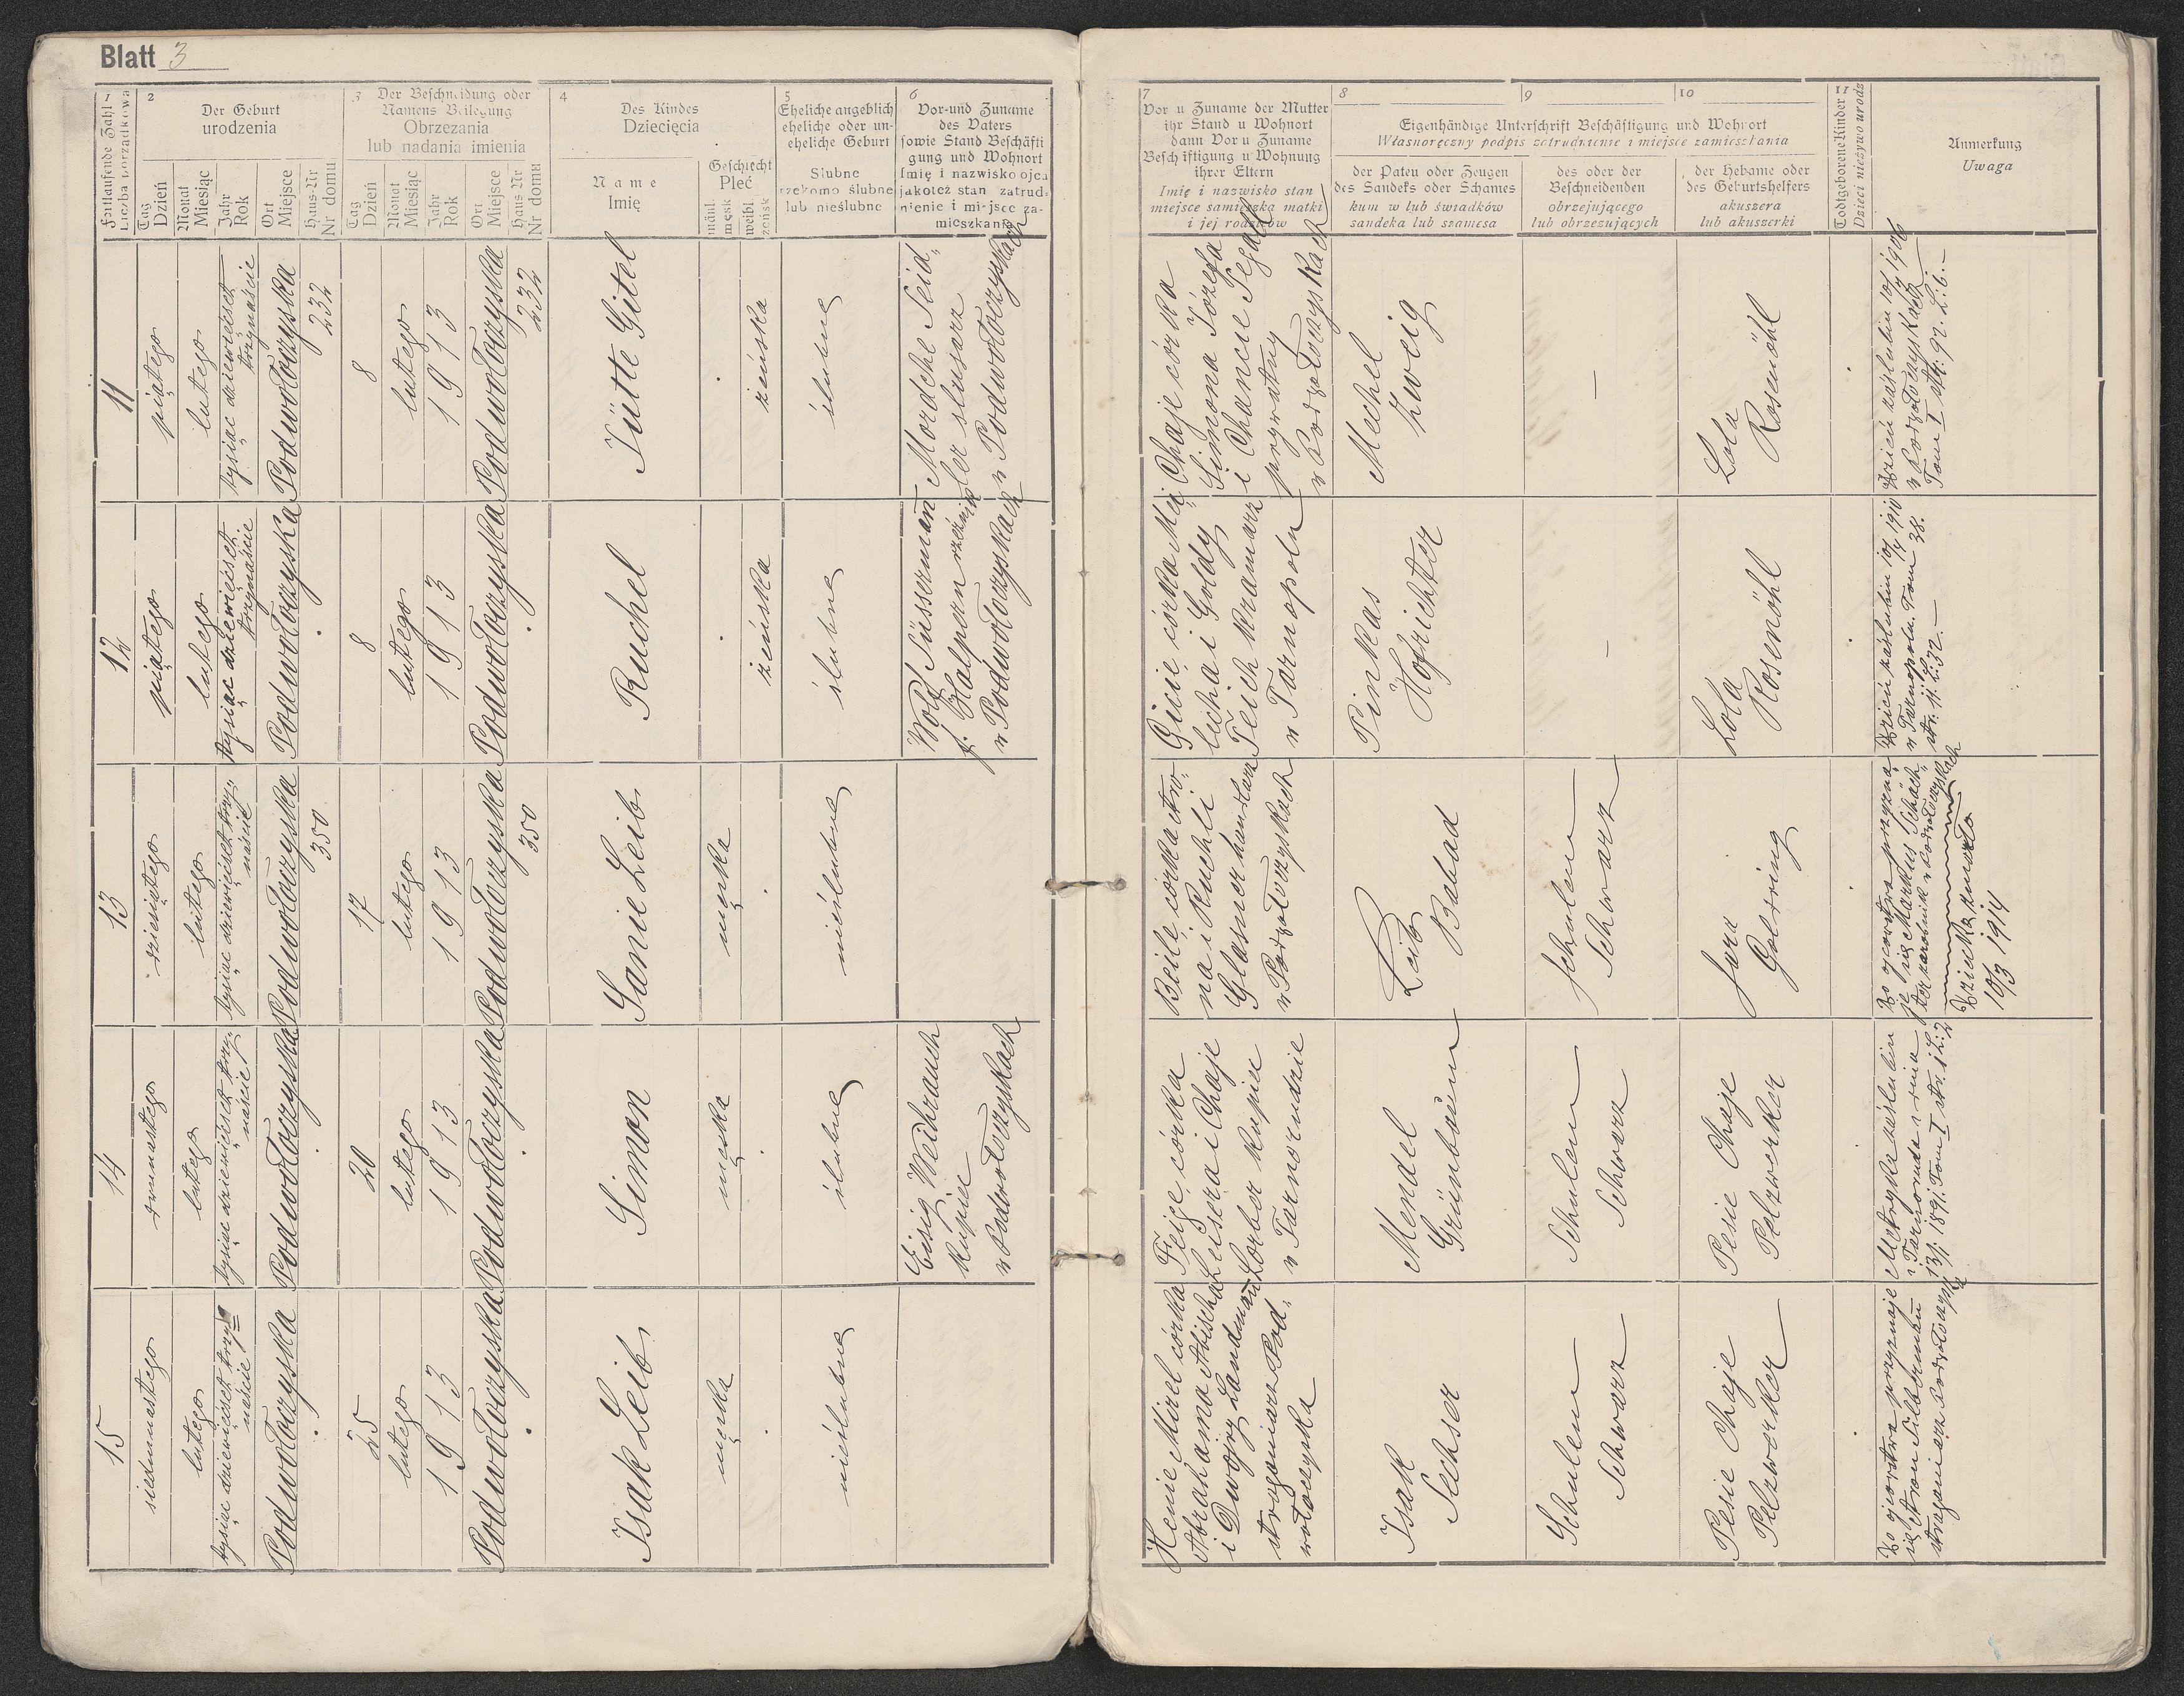 Blatt 3
1
Fortlaufende Zahl
Liczba porządkowa
2
Der Geburt
urodzenia
Tag
Dzień
Monat
Miesiąc
Jahr
Rok
Ort
Miejsce
Haus-Nr
Nr domu
3
Der Beschneidung oder
Namens Beilegung
Obrzezania
lub nadania imienia
Tag
Dzień
Monat
Miesiąc
Jahr
Rok
Ort
Miejsce
Haus Nr
Nr domu
4
Des Kindes
Dziecięcia
Name
Imię
Geschlecht
Płeć
männl.
męsk
weibl.
żeńsk
5
Eheliche angeblich
eheliche oder un-
eheliche Geburt
Ślubne
rzekomo ślubne
lub nieślubne
6
Vor-und Zuname
des Vaters
sowie Stand Beschäfti
gung und Wohnort
Imię i nazwisko ojca
jakoteż stan zatrud-
nienie i miejsce za-
mieszkania
7
Vor u Zuname der Mutter
ihr Stand u Wohnort
dann Vor u Zuname
Beschäftigung u Wohnung
ihrer Eltern
Imię i nazwisko stan
miejsce zamieszka matki
i jej rodziców
8
9
10
Eigenhändige Unterschrift Beschäftigung und Wohnort
Własnoręczny podpis zatrudnienie i miejsce zamieszkania
der Paten oder Zeugen
des Sandeks oder Schames
kum w lub świadków
sandeka lub szamesa
des oder der
Beschneidenden
obrzejującego
lub obrzezujących
der Hebame oder
des Geburtshelfers
akuszera
lub akuszerki
11
Todtgeborene Kinder
Dzieci nieżywo urodz
Anmerkung
Uwaga
11
piątego
lutego
tysiąc dziewięćset
trzynaście
Podwołoczyska
232
8
lutego
1913
Podwołoczyska
232
Jütte Gitel
żeńska
ślubne
Mordche Seid-
ler slusarz
w Podwołoczyskach
Chaje córka
Simona Józefa
i Chancie Segall
prywatny
w Podwołoczyskach
Mechel
Zweig
—
Lola
Rosenöhl
Rodzice zaślubieni 10/7 1906
w Podwołoczyskach
Tom I str. 92. L. 6. —
12
piątego
lutego
tysiąc dziewięćset
trzynaście
Podwołoczyska
8
lutego
1913
Podwołoczyska
Ruchel
żeńska
ślubne
Wolf Süssermann
f. Halpern rzeźnik
w Podwołoczyskach
córka Me-
lecha i Goldy
Teich kramarz
w Tarnopolu
Pinkas
Hofrichter
—
Lola
Rosenöhl
w Tarnopolu. Tom 38.
str. 11. L. 32. —
13
dziesiątego
lutego
tysiąc dziewięćset trzy-
naście
Podwołoczyska
350
17
lutego
1913
Podwołoczyska
350
Sanie Leib
męska
nieślubne
Beile, córka
na i Ruchli
Glasner handlarz
w Podwołoczyskach
Leib
Babad
Schulem
Schwarz
Sara
Goldring
Do ojcostwa przyzna-
je się Markus Schäch-
ter zarobnik w Podwołoczyskach
Dziecko zmarło
10/3 1914
14
dwunastego
lutego
tysiąc dziewięćset trzy-
naście
Podwołoczyska
20
lutego
1913
Podwołoczyska
Simon
męska
ślubne
Eisig Weihrauch
kupiec
w Podwołoczyskach
Feige, córka
Leisera i Chaje
Lorber kupiec
w Tarnorudzie
Mendel
Grünbaum
Schulem
Schwarz
Pesie Chaje
Pelzwerker
Metryka zaślubin
z Tarnoruda z dnia
13/1 1891. Tom I str. 1 L: 2
15
siedemnastego
lutego
tysiąc dziewięćset trzy=
naście
Podwołoczyska
25
lutego
1913
Podwołoczyska
Isak Leib
męska
nieślubne
Henie Mirel córka
Abrahama Abischa
i Dwojry Landmann
straganiarz Pod-
wołoczyska
Isak
Sechser
Schulem
Schwarz
Pesie Chaje
Pelzwerker
Do ojcostwa przyznaje
się Aron Silbermann
straganiarz Podwołoczyska